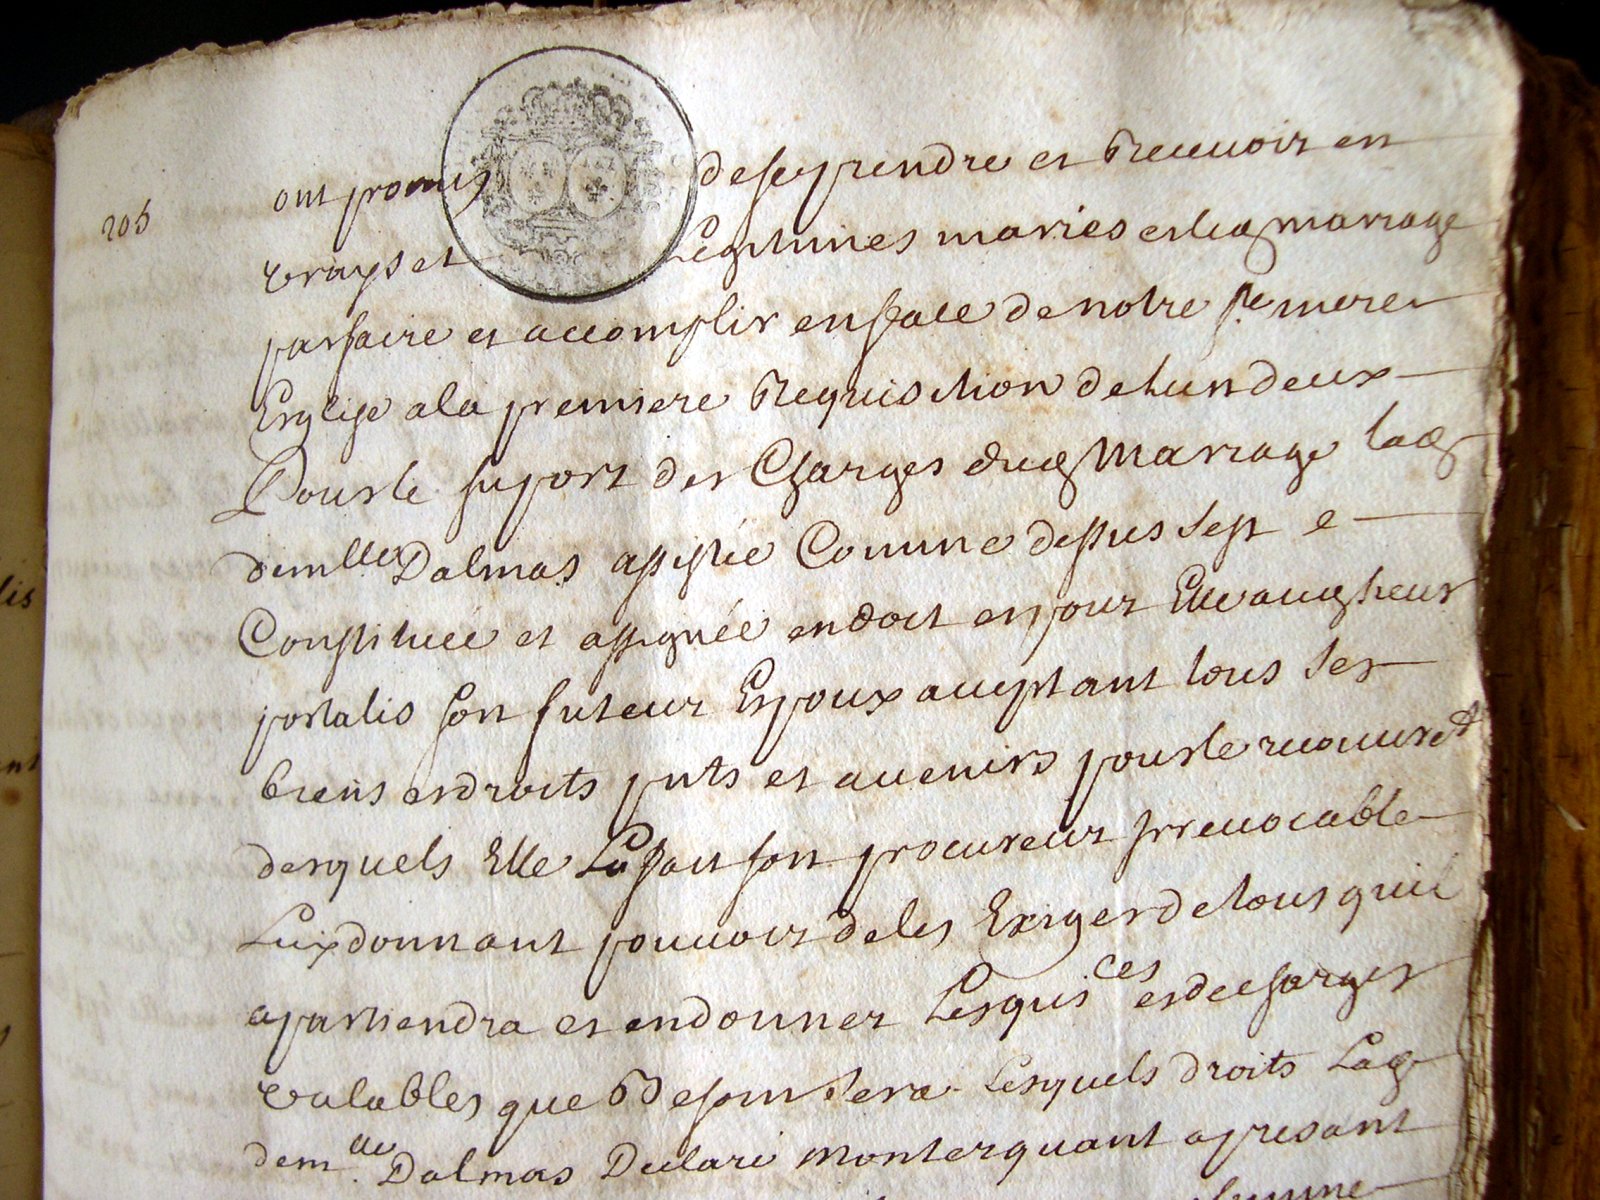 205
ont promis de se prendre et Recevoir en
vrays et Legitimes maries et led mariage
parfaire et accomplir en face de notre ste mere
Esglise a la premiere Requisition de lun deux
Pour le suport des Charges dud Mariage lad
demlle Dalmas assistée Comme dessus sest
Constituée et assignée en dot et pour Elle aud sieur
portalis son futeur Espoux aceptant tous ses
biens et droits pnts et avenirs pour le recouvret
desquels Elle La fait son procureur Irrevocable
Luy donnant pouvoir de les Exiger de tous quil
apartiendra et en donner Les quisces et descharges
valables que Besoin sera Lesquels droits Lad
demlle Dalmas Declare monter quant a presant